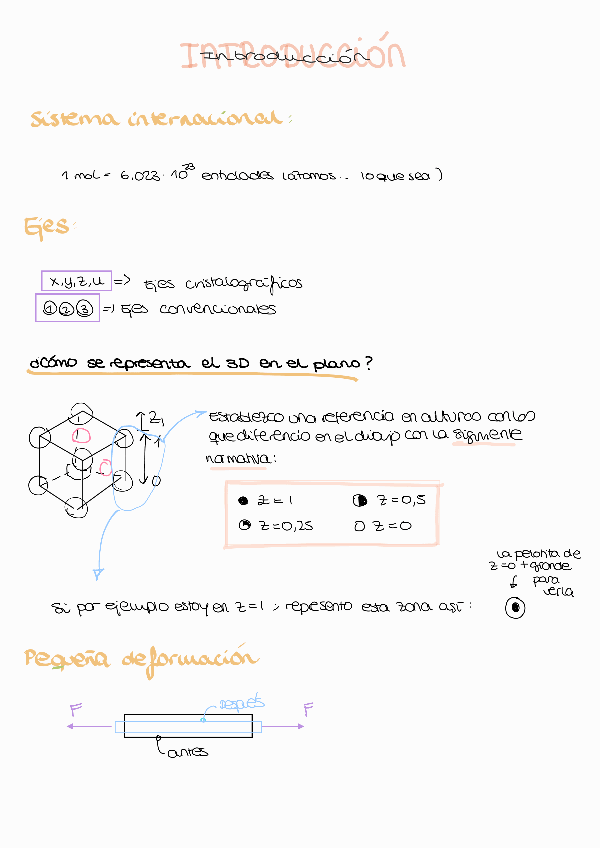 INTRODUCCIÓN
Introducción
Sistema internacional:
1 mol = 6,023 · 10²³ entidades (átomos... lo que sea)
Ejes
x,y,z,u => Ejes cristalográficos
1 2 3 => Ejes convencionales
¿Cómo se representa el 3D en el plano?
Z
1
0
Establezco una referencia en alturas con los
que diferencio en el dibujo con la siguiente
normativa:
Z=1 Z=0,5
Z=0,25 Z=0
La pelotita de
z=0 + grande
para
verla
Si por ejemplo estoy en Z=1, represento esta zona así:
Pequeña deformación
F después F
antes